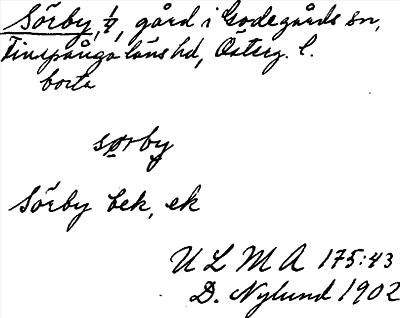 Sörby, 1/4, gård i Godegårds sn,
Finspånga läns hd, Österg. l.
borta
sørby
Sörby bek, ek
U L M A 175:43
D. Nylund 1902